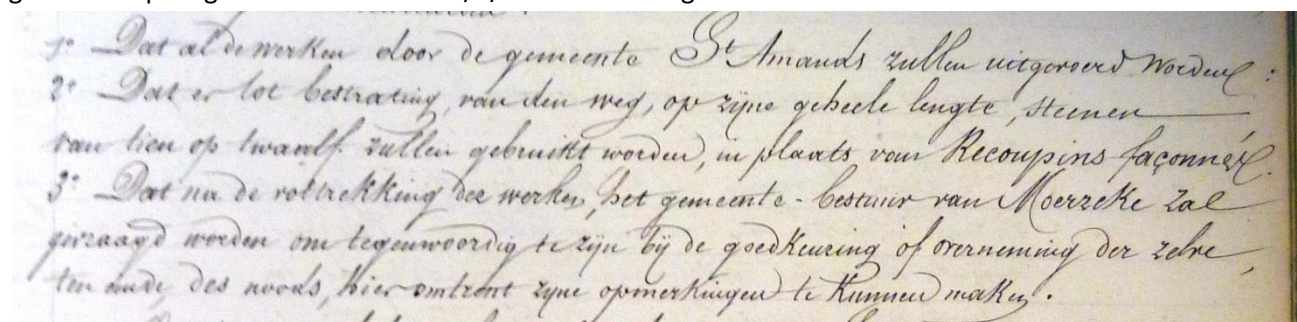 1° Dat al de werken door de gemeente St Amands zullen uitgevoerd worden :
2° Dat er tot bestrating, van den weg, op zijne geheele lengte, steenen
van tien op twaalf zullen gebruikt worden, in plaats van Recoupins façonnés.
3° Dat na de voltrekking der werken, het gemeente-bestuur van Moerzeke zal
gevraagd worden om tegenwoordig te zijn bij de goedkeuring of overneming der zelve,
ten einde, des noods, hier omtrent zijne opmerkingen te kunnen maken.